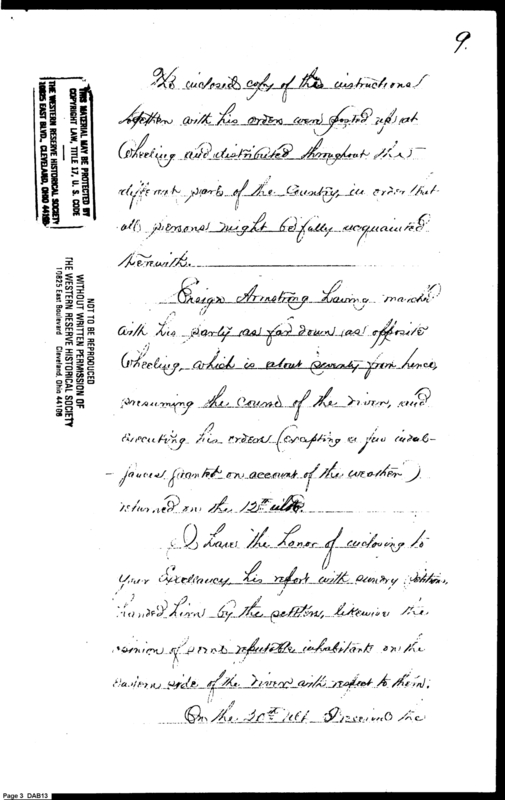 9.
The inclosed copy of the instructions
together with his orders were posted up at
Wheeling and distributed throughout the
different parts of the Country, in order that
all persons might be fully acquainted
therewith.
Ensign Armstrong having march'd
with his party as far down as opposite
Wheeling, which is about seventy from hence,
pursuing the course of the river, and
executing his orders (excepting a few indul-
gences granted on account of the weather)
returned on the 12th ulto.
I have the honor of inclosing to
your Excellency his report with sundry petitions
handed him by the settlers, likewise the
opinion of some reputable inhabitants on the
eastern side of the river with respect to them.
On the 20th ult I received the
THIS MATERIAL MAY BE PROTECTED BY
COPYRIGHT LAW, TITLE 17, U. S. CODE
THE WESTERN RESERVE HISTORICAL SOCIETY
10825 EAST BLVD., CLEVELAND, OHIO 44106
NOT TO BE REPRODUCED
WITHOUT WRITTEN PERMISSION OF
THE WESTERN RESERVE HISTORICAL SOCIETY
10825 East Boulevard Cleveland, Ohio 44106
Page 3 DAB13